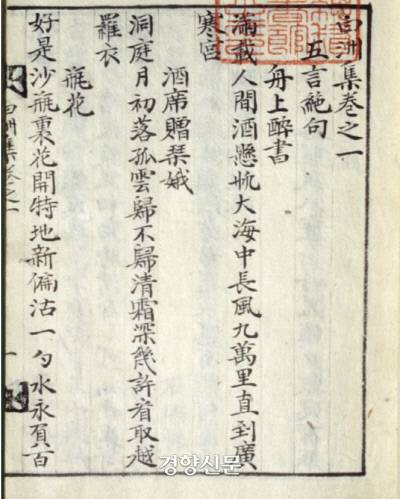 白洲集卷之一
五言絶句
舟上醉書
滿載人間酒懸帆大海中長風九萬里直到廣
寒宮
酒席贈琴娥
洞庭月初落孤雲歸不歸清霜深幾許看取越
羅衣
瓶花
好是沙瓶裏花開特地新偏沾一勺水永負百
白洲集卷之一
一
경향신문